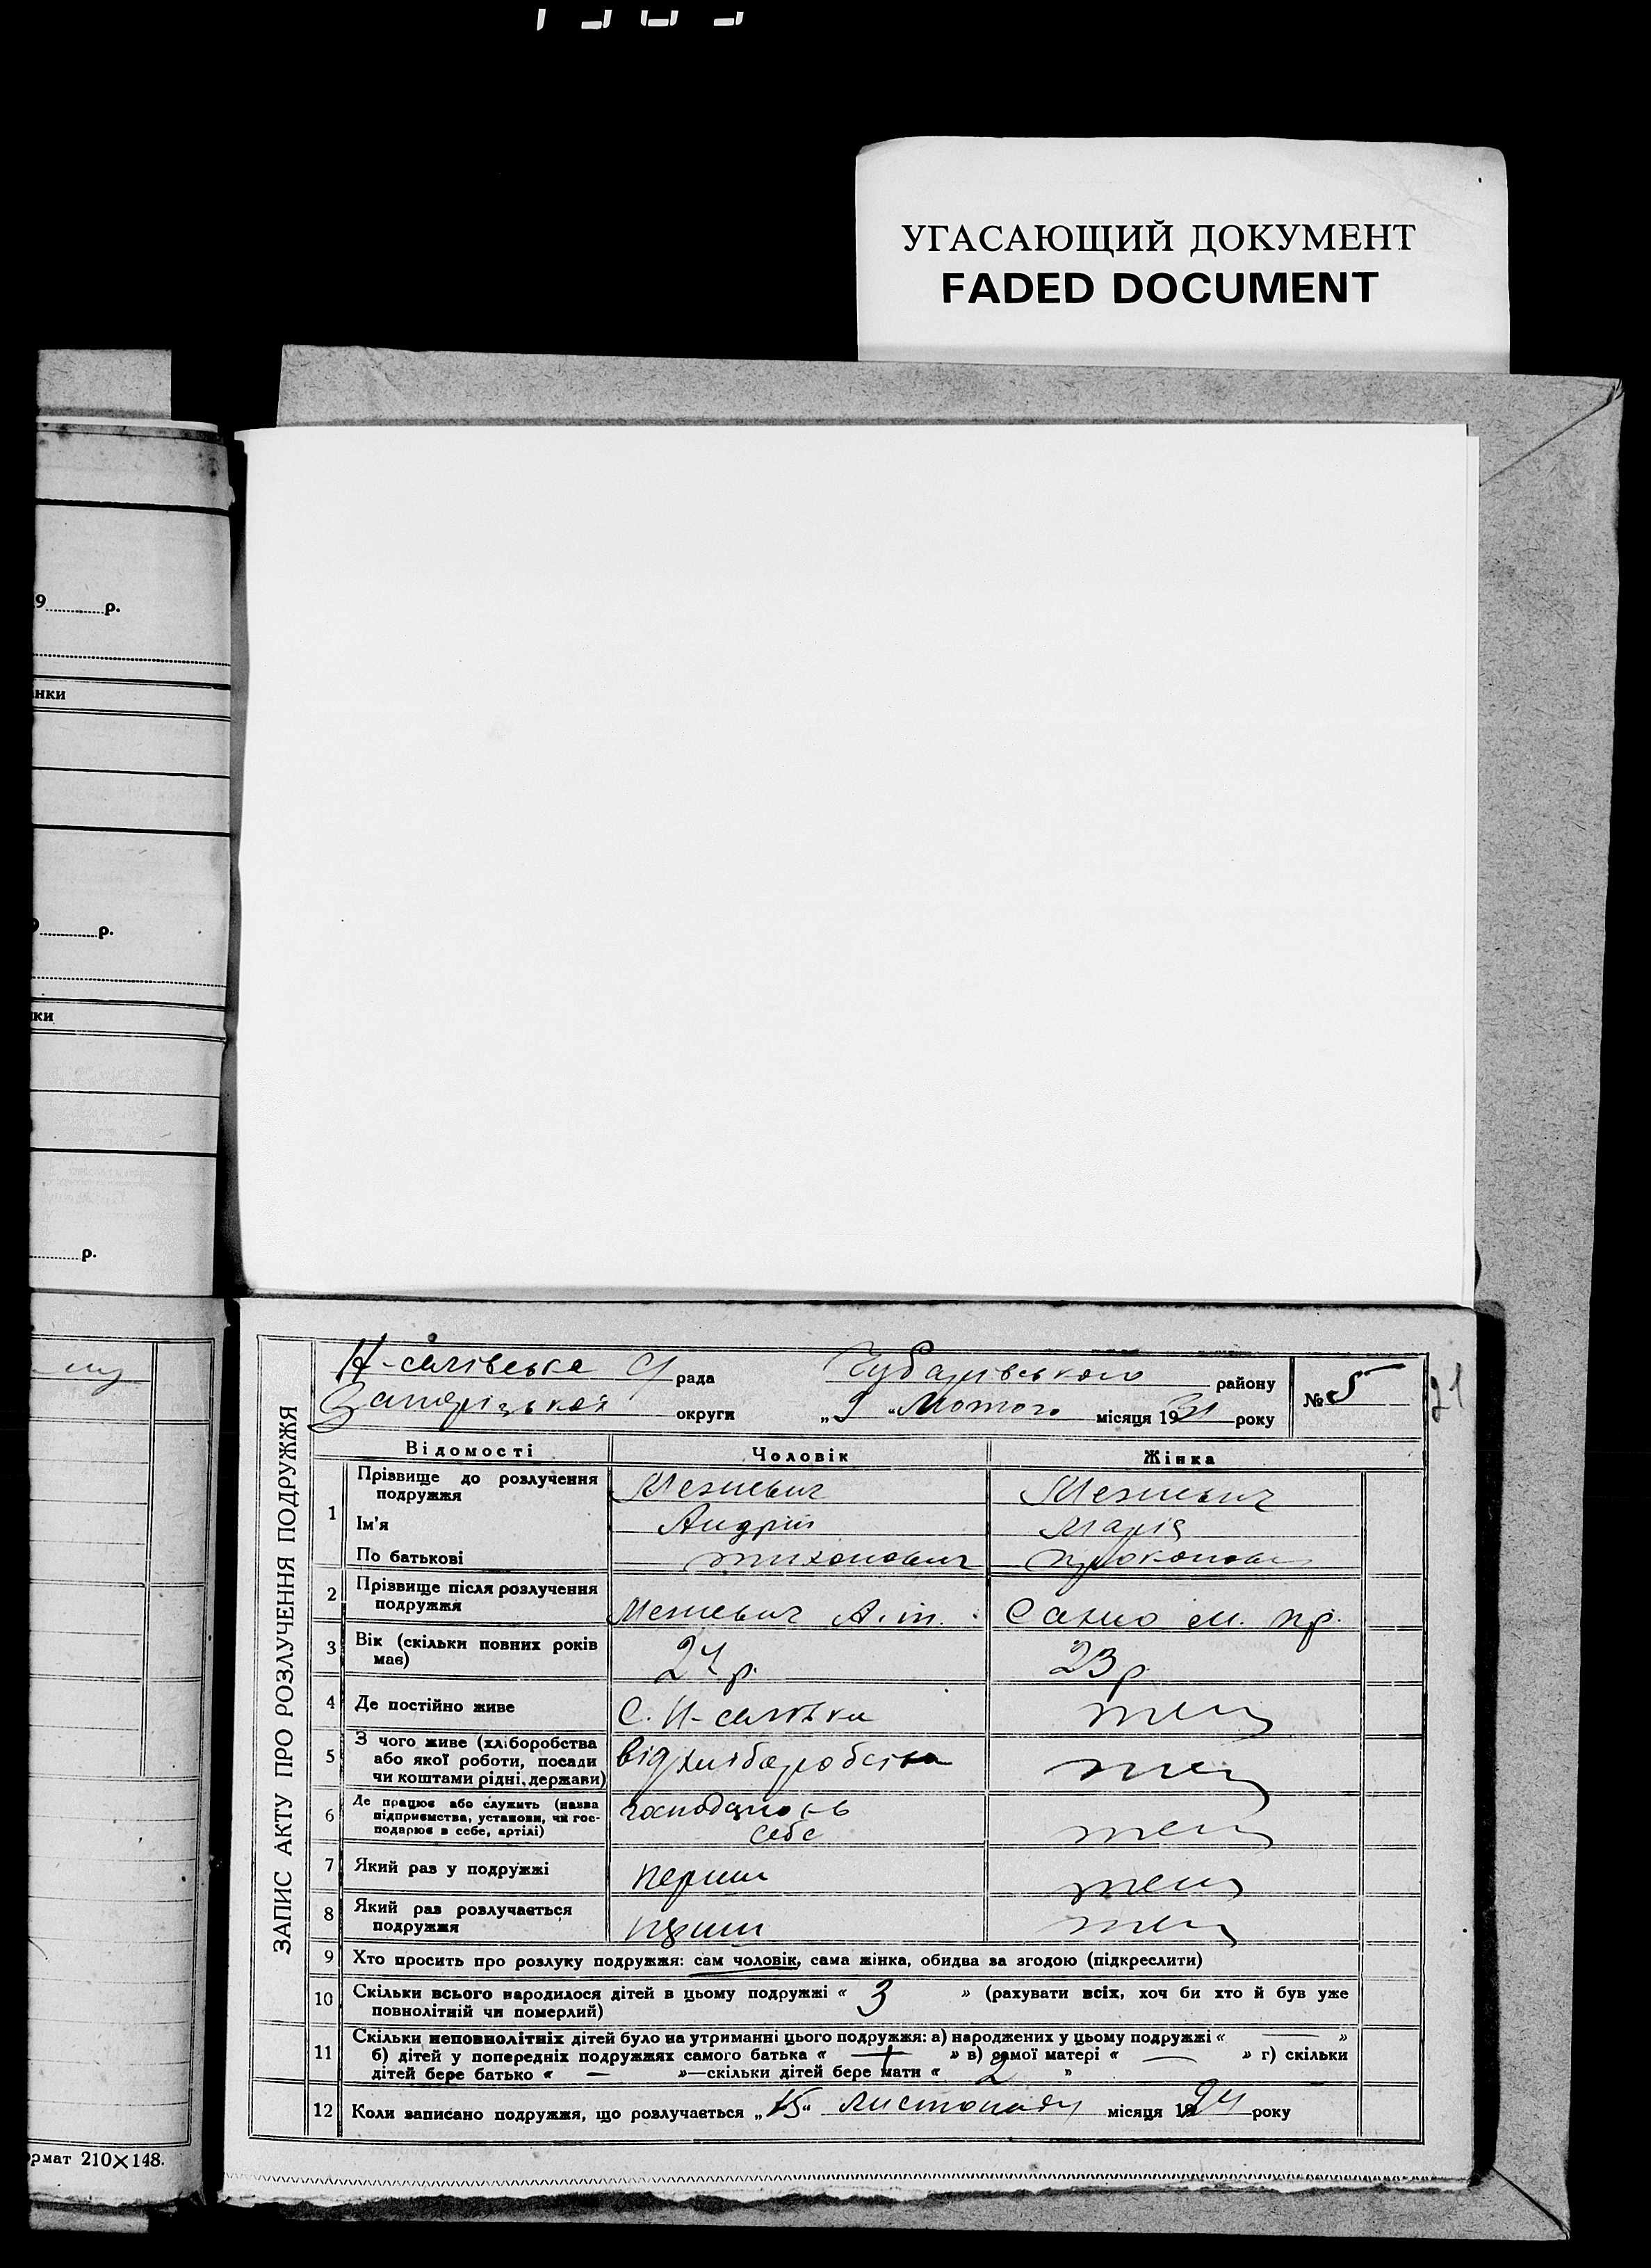 УГАСАЮЩИЙ ДОКУМЕНТ
FADED DOCUMENT
9 р.
нки
р.
ки
р.
рмат 210×148.
ЗАПИС АКТУ ПРО РОЗЛУЧЕННЯ ПОДРУЖЖЯ
рада Чубарівського району
№ 5
21
округи „9“ Лютого місяця 1931 року
Відомості Чоловік Жінка
1 Прізвище до розлучення подружжя Межевич Межевич
Ім'я Андрій Марія
По батькові Тихонович Прокопов
2 Прізвище після розлучення подружжя Межевич А. т. Сахно М. Пр.
3 Вік (скільки повних років має) 24 р. 23 р
4 Де постійно живе
5 З чого живе (хліборобства або якої роботи, посади чи коштами рідні, держави) від хліборобства
6 Де працює або служить (назва підприємства, установи, чи господарює в себе, артілі) себе
7 Який раз у подружжі перший
8 Який раз розлучається подружжя
9 Хто просить про розлуку подружжя: сам чоловік, сама жінка, обидва за згодою (підкреслити)
10 Скільки всього народилося дітей в цьому подружжі « 3 » (рахувати всіх, хоч би хто й був уже
повнолітній чи померлий)
11 Скільки неповнолітніх дітей було на утриманні цього подружжя: а) народжених у цьому подружжі « — »
б) дітей у попередніх подружжях самого батька « » в) самої матері « — » г) скільки
дітей бере батько « — »—скільки дітей бере мати « 2 »
12 Коли записано подружжя, що розлучається „15“ Листопаду місяця 1924 року